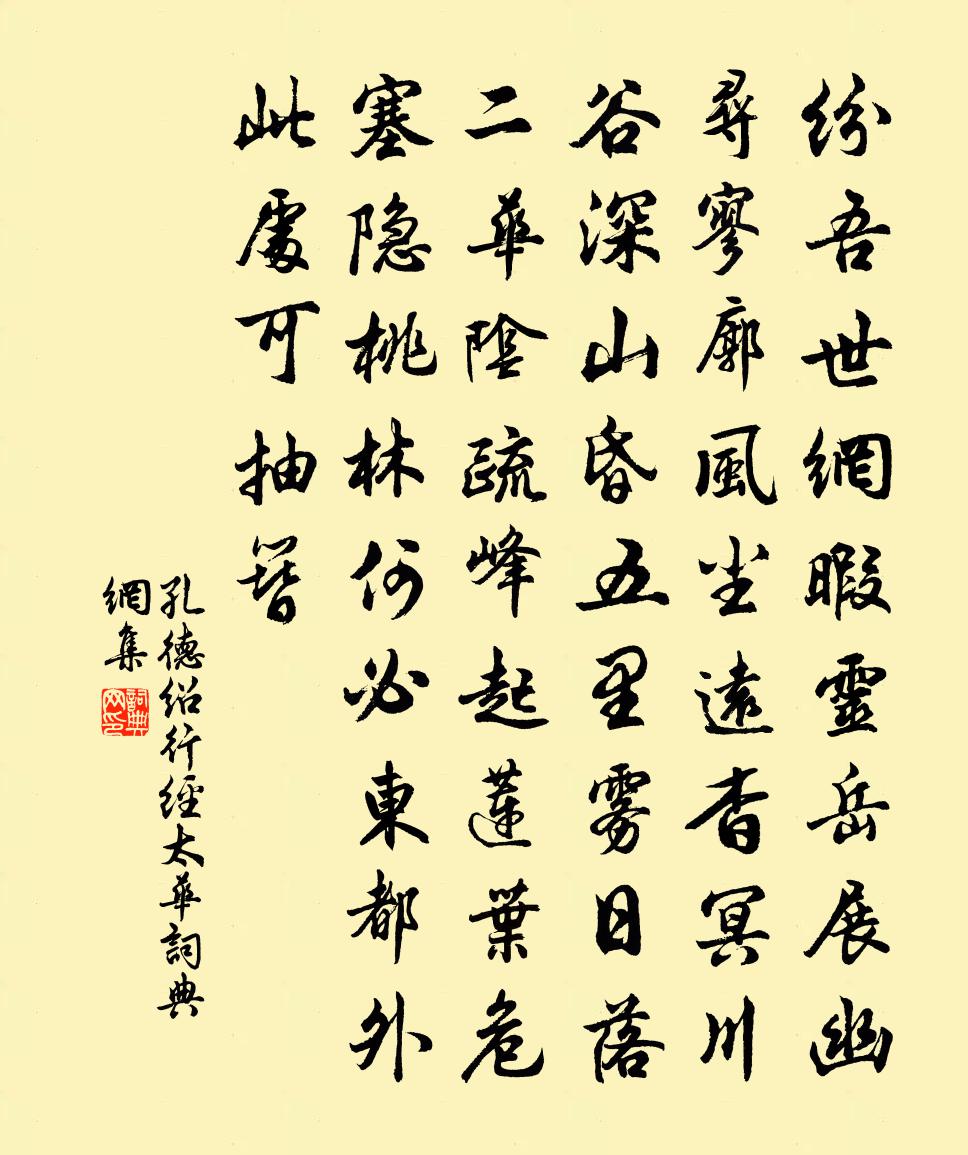 紛吾世網暇靈岳展幽
尋寥廓風塵遠杳冥川
谷深山昏五里雾日落
二華陰疏峰起蓮葉危
塞隐桃林何必東都外
此處可抽簪
孔德绍行經太華詞典
網集
詞典網印